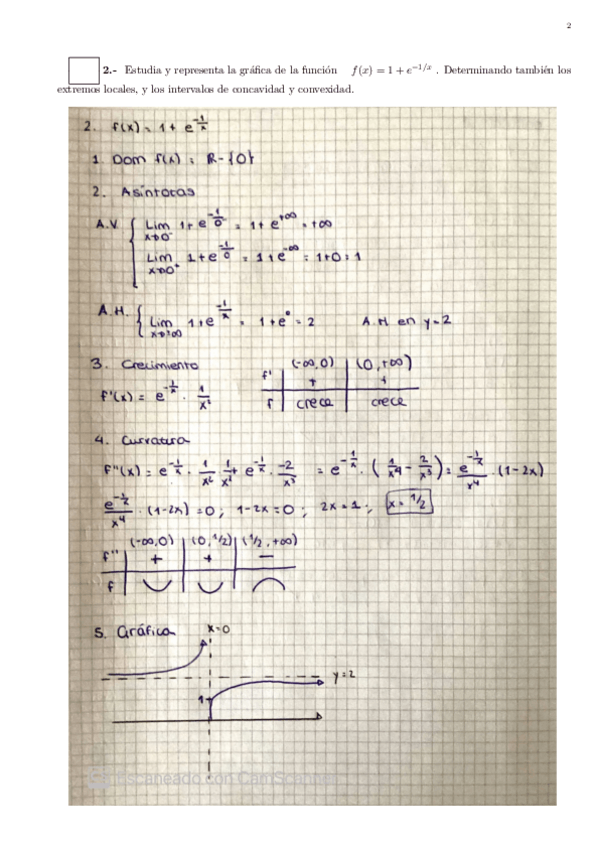 2
2.- Estudia y representa la gráfica de la función f(x) = 1 + e^{-1/x} . Determinando también los
extremos locales, y los intervalos de concavidad y convexidad.
2. f(x) = 1 + e^{-1/x}
1. Dom f(x) = R-{0}
2. Asíntotas
A.V. { Lim x→0⁻ 1+e^{-1/0} = 1+e^{+∞} = +∞
Lim x→0⁺ 1+e^{-1/0} = 1+e^{-∞} = 1+0=1
A.H. { Lim x→±∞ 1+e^{-1/x} = 1+e^0 = 2 A.H en y=2
3. Crecimiento
(-∞,0) | (0,+∞)
f' | + | +
f'(x) = e^{-1/x} · 1/x²
f | crece | crece
4. Curvatura
f''(x) = e^{-1/x} · 1/x² · 1/x² + e^{-1/x} · -2/x³ = e^{-1/x} · (1/x⁴ - 2/x³) = e^{-1/x}/x⁴ · (1-2x)
e^{-1/x}/x⁴ · (1-2x) = 0 ; 1-2x=0 ; 2x=1 ; x = 1/2
(-∞,0) | (0,1/2) | (1/2,+∞)
f'' | + | + | −
f
5. Gráfica x=0
y=2
1
Escaneado con CamScanner